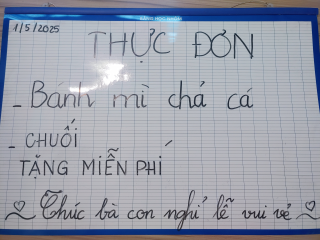 1/5/2025
THỰC ĐƠN
- Bánh mì chả cá
- CHUỐI
TẶNG MIỄN PHÍ
Chúc bà con nghỉ lễ vui vẻ